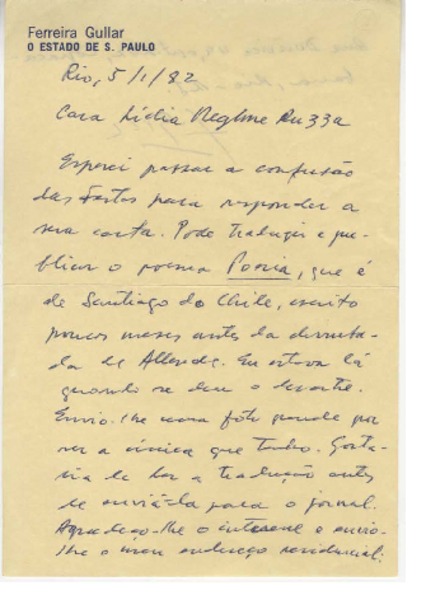 Ferreira Gullar
O ESTADO DE S. PAULO
Rio, 5/1/82
Cara Lídia Neghme
Esperei passar a confusão
das festas para responder a
sua carta. Pode traduzir e pu-
blicar o poema Poesia, que é
de Santiago do Chile, escrito
poucos meses antes da derruba-
da de Allende. Eu estava lá
quando se deu o desastre.
Envio-lhe uma foto grande por
ser a única que tenho. Gosta-
ria de ler a tradução antes
de enviá-la para o jornal.
Agradeço-lhe o interesse e envio-
lhe o meu endereço residencial: